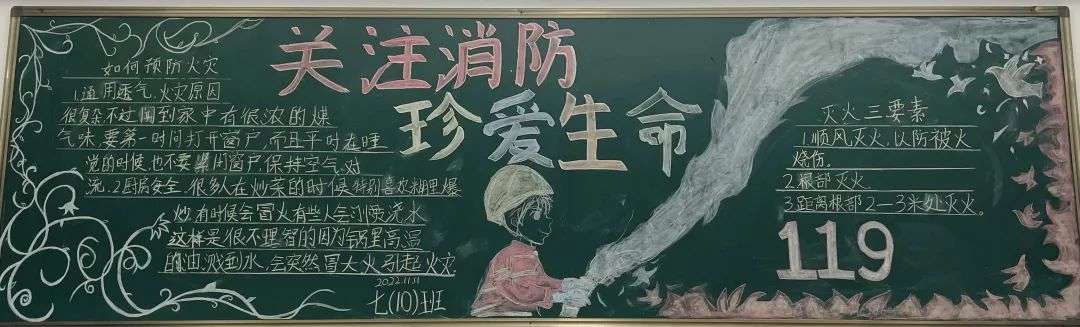 关注消防
珍爱生命
如何预防火灾
1.通用透气,火灾原因
很复杂不过闻到家中有很浓的煤
气味,要第一时间打开窗户,而且平时在睡
觉的时候,也不要紧闭窗户保持空气对
流.2.厨房安全,很多人在炒菜的时候特别喜欢 爆
炒 有时候会冒火有些人会 浇水
这样是很不理智的因为锅里高温
的油,溅到水,会突然冒大火引起火灾
2022.11.11
七(10)班
灭火三要素
1.顺风灭火,以防被火
烧伤。
2.根部灭火.
3.距离根部2-3米处灭火。
119